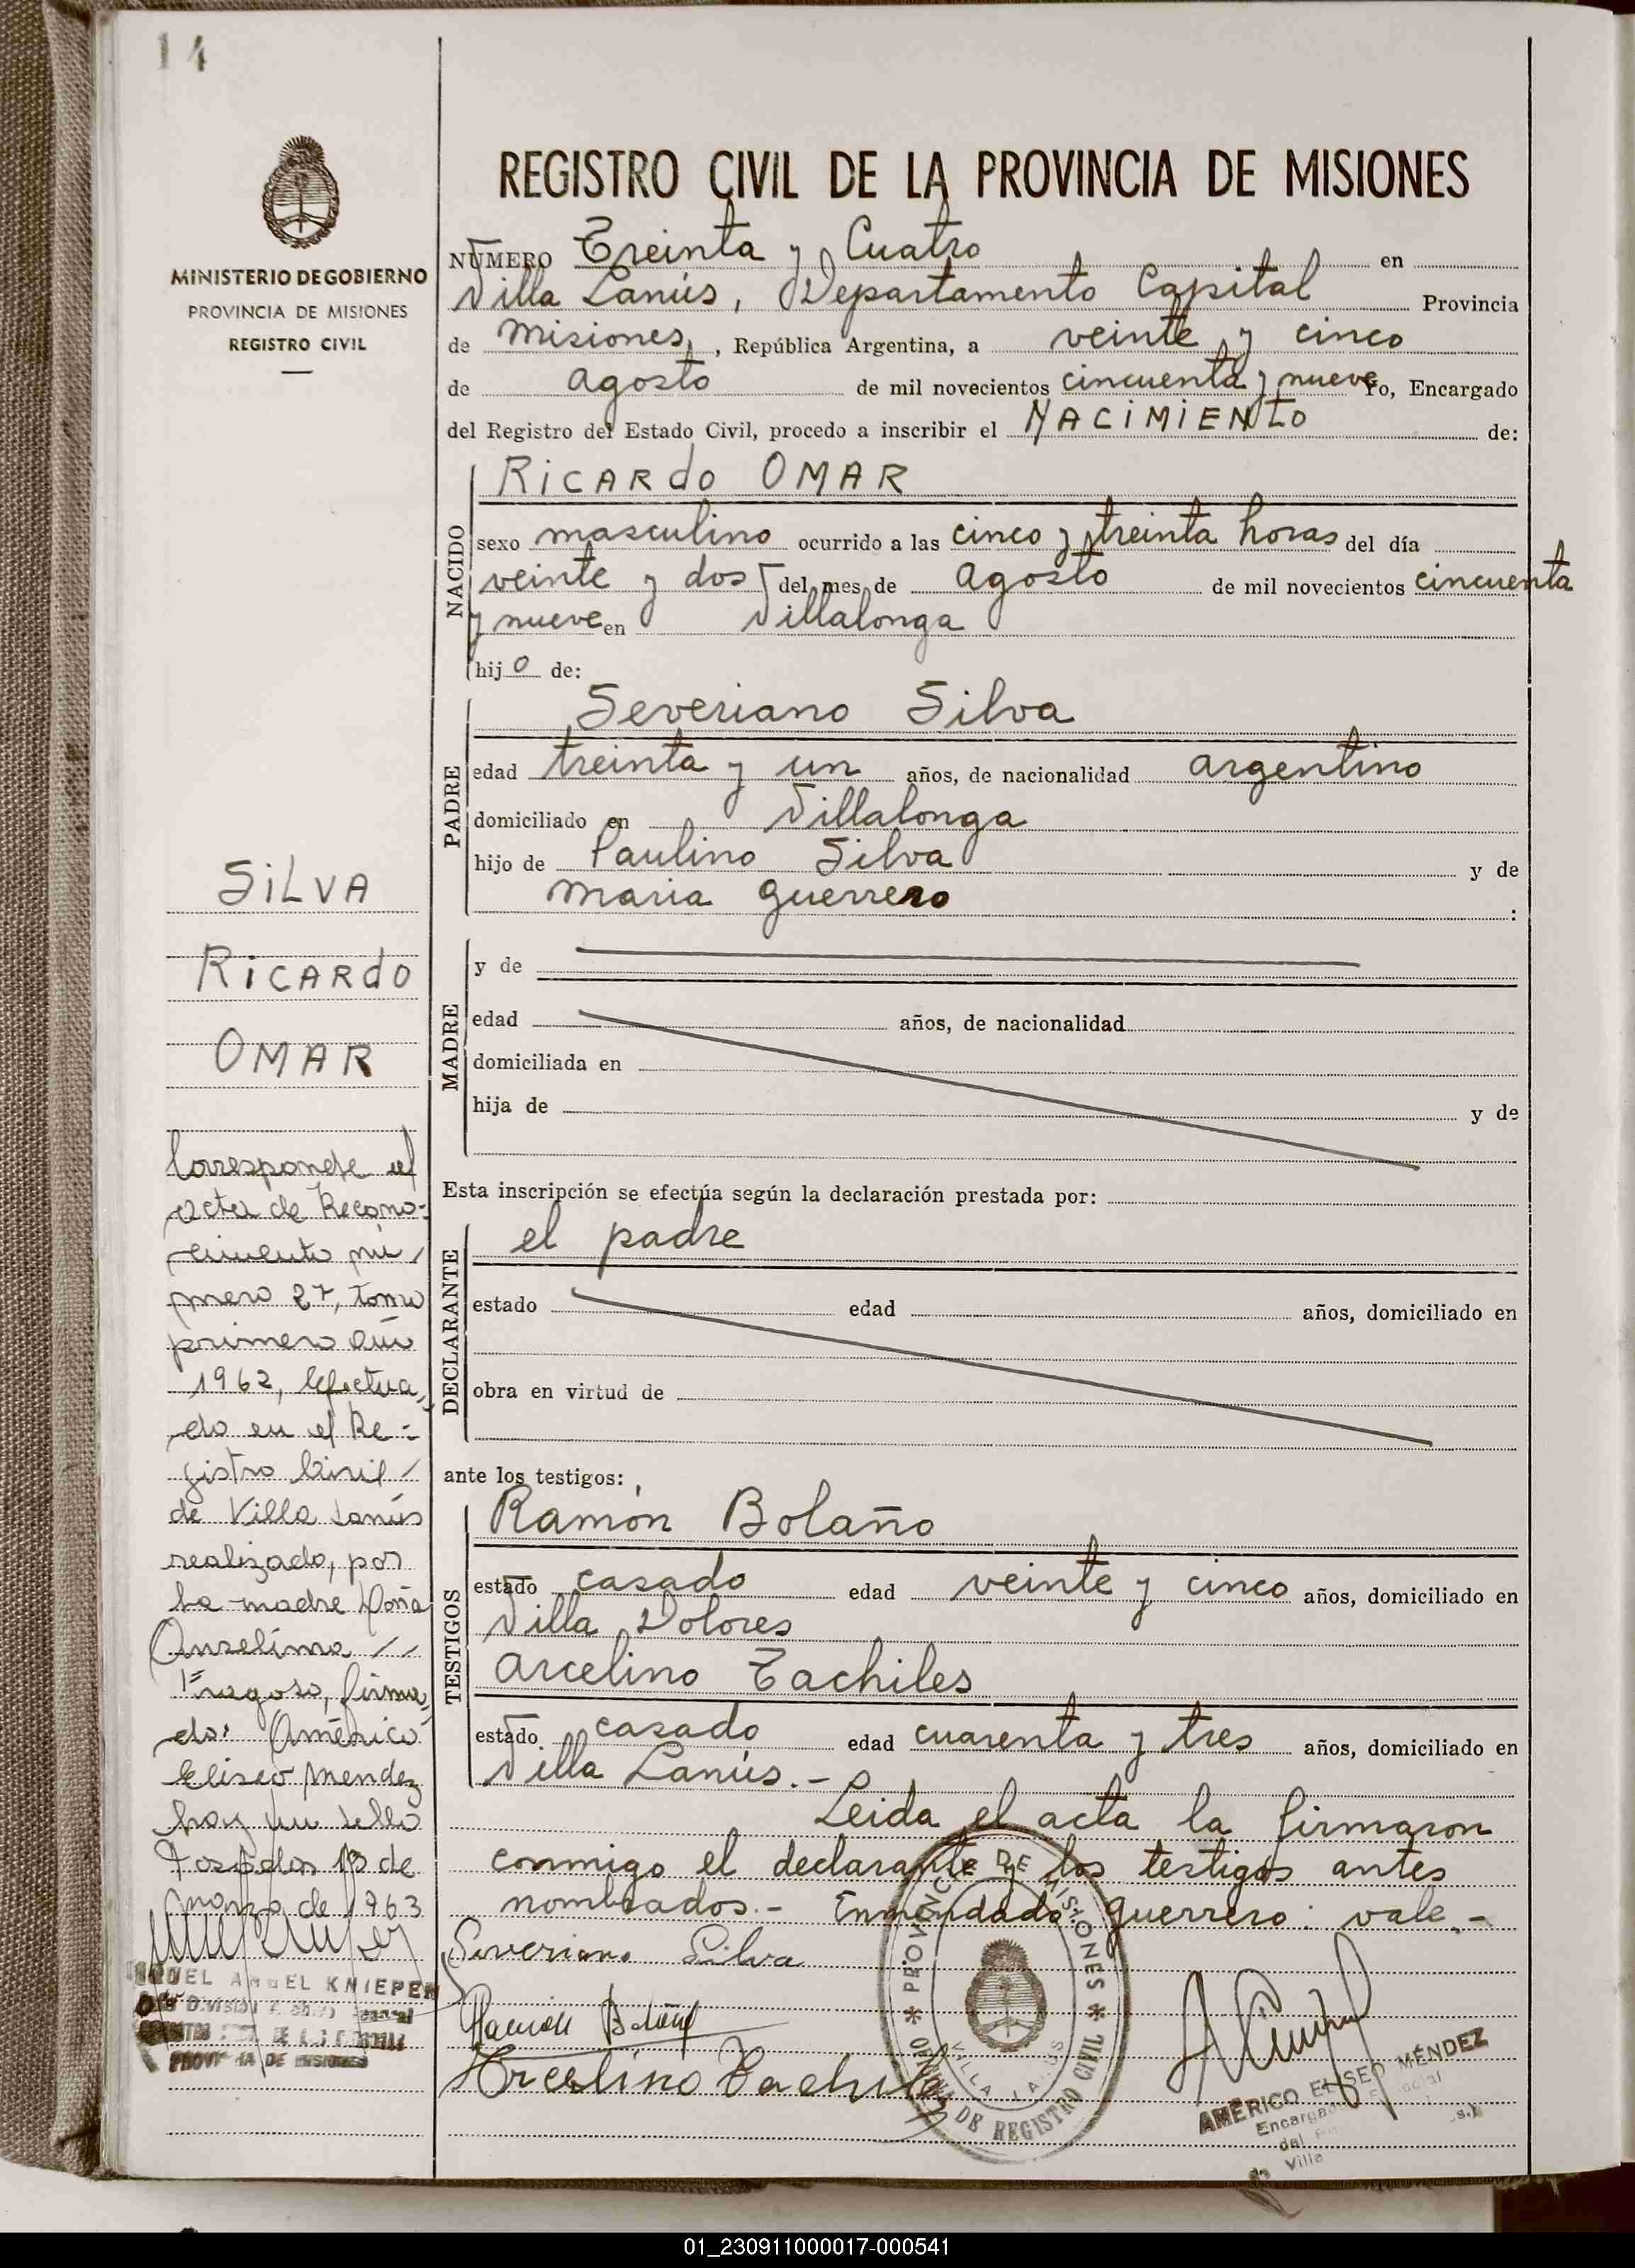 14
MINISTERIO DE GOBIERNO
PROVINCIA DE MISIONES
REGISTRO CIVIL
SILVA
RICARDO
OMAR
Corresponde el
acta de Recono-
cimiento nú/
mero 27, tomo
primero año
1962, efectua,
do en el Re-
gistro Civil/
de Villa Lanús
realizado, por
la madre Doña
Anselima //
Fragoso, firma,
do: Américo
Eliseo Mendez
hay un sello
Posadas 13 de
marzo de 1963
ANGEL KNIEPER
PROVINCIA DE MISIONES
REGISTRO CIVIL DE LA PROVINCIA DE MISIONES
NÚMERO Treinta y Cuatro en
Villa Lanús, Departamento Capital Provincia
de Misiones, , República Argentina, a veinte y cinco
de agosto de mil novecientos cincuenta y nueve Yo, Encargado
del Registro del Estado Civil, procedo a inscribir el NACIMIENTO de:
NACIDO
RICARDO OMAR
sexo masculino ocurrido a las cinco y treinta horas del día
veinte y dos del mes de agosto de mil novecientos cincuenta
y nueve en Villalonga
hijo de:
PADRE
Severiano Silva
edad treinta y un años, de nacionalidad argentino
domiciliado en Villalonga
hijo de Paulino Silva y de
Maria Guerrero :
MADRE
y de
edad años, de nacionalidad
domiciliada en
hija de y de
Esta inscripción se efectúa según la declaración prestada por:
DECLARANTE
el padre
estado edad años, domiciliado en
obra en virtud de
ante los testigos:
TESTIGOS
Ramón Bolaño
estado casado edad veinte y cinco años, domiciliado en
Villa Dolores
Arcelino Tachiles
estado casado edad cuarenta y tres años, domiciliado en
Villa Lanús.-
Leida el acta la firmaron
conmigo el declarante y los testigos antes
nombrados.- Enmendado: Guerrero: vale.-
Severiano Silva
Ramón Bolaño
Arcelino Tachiles
PROVINCIA DE MISIONES
OFICINA DE REGISTRO CIVIL
VILLA LANUS
AMÉRICO ELISEO MÉNDEZ
Encargado
del
Villa
01_230911000017-000541